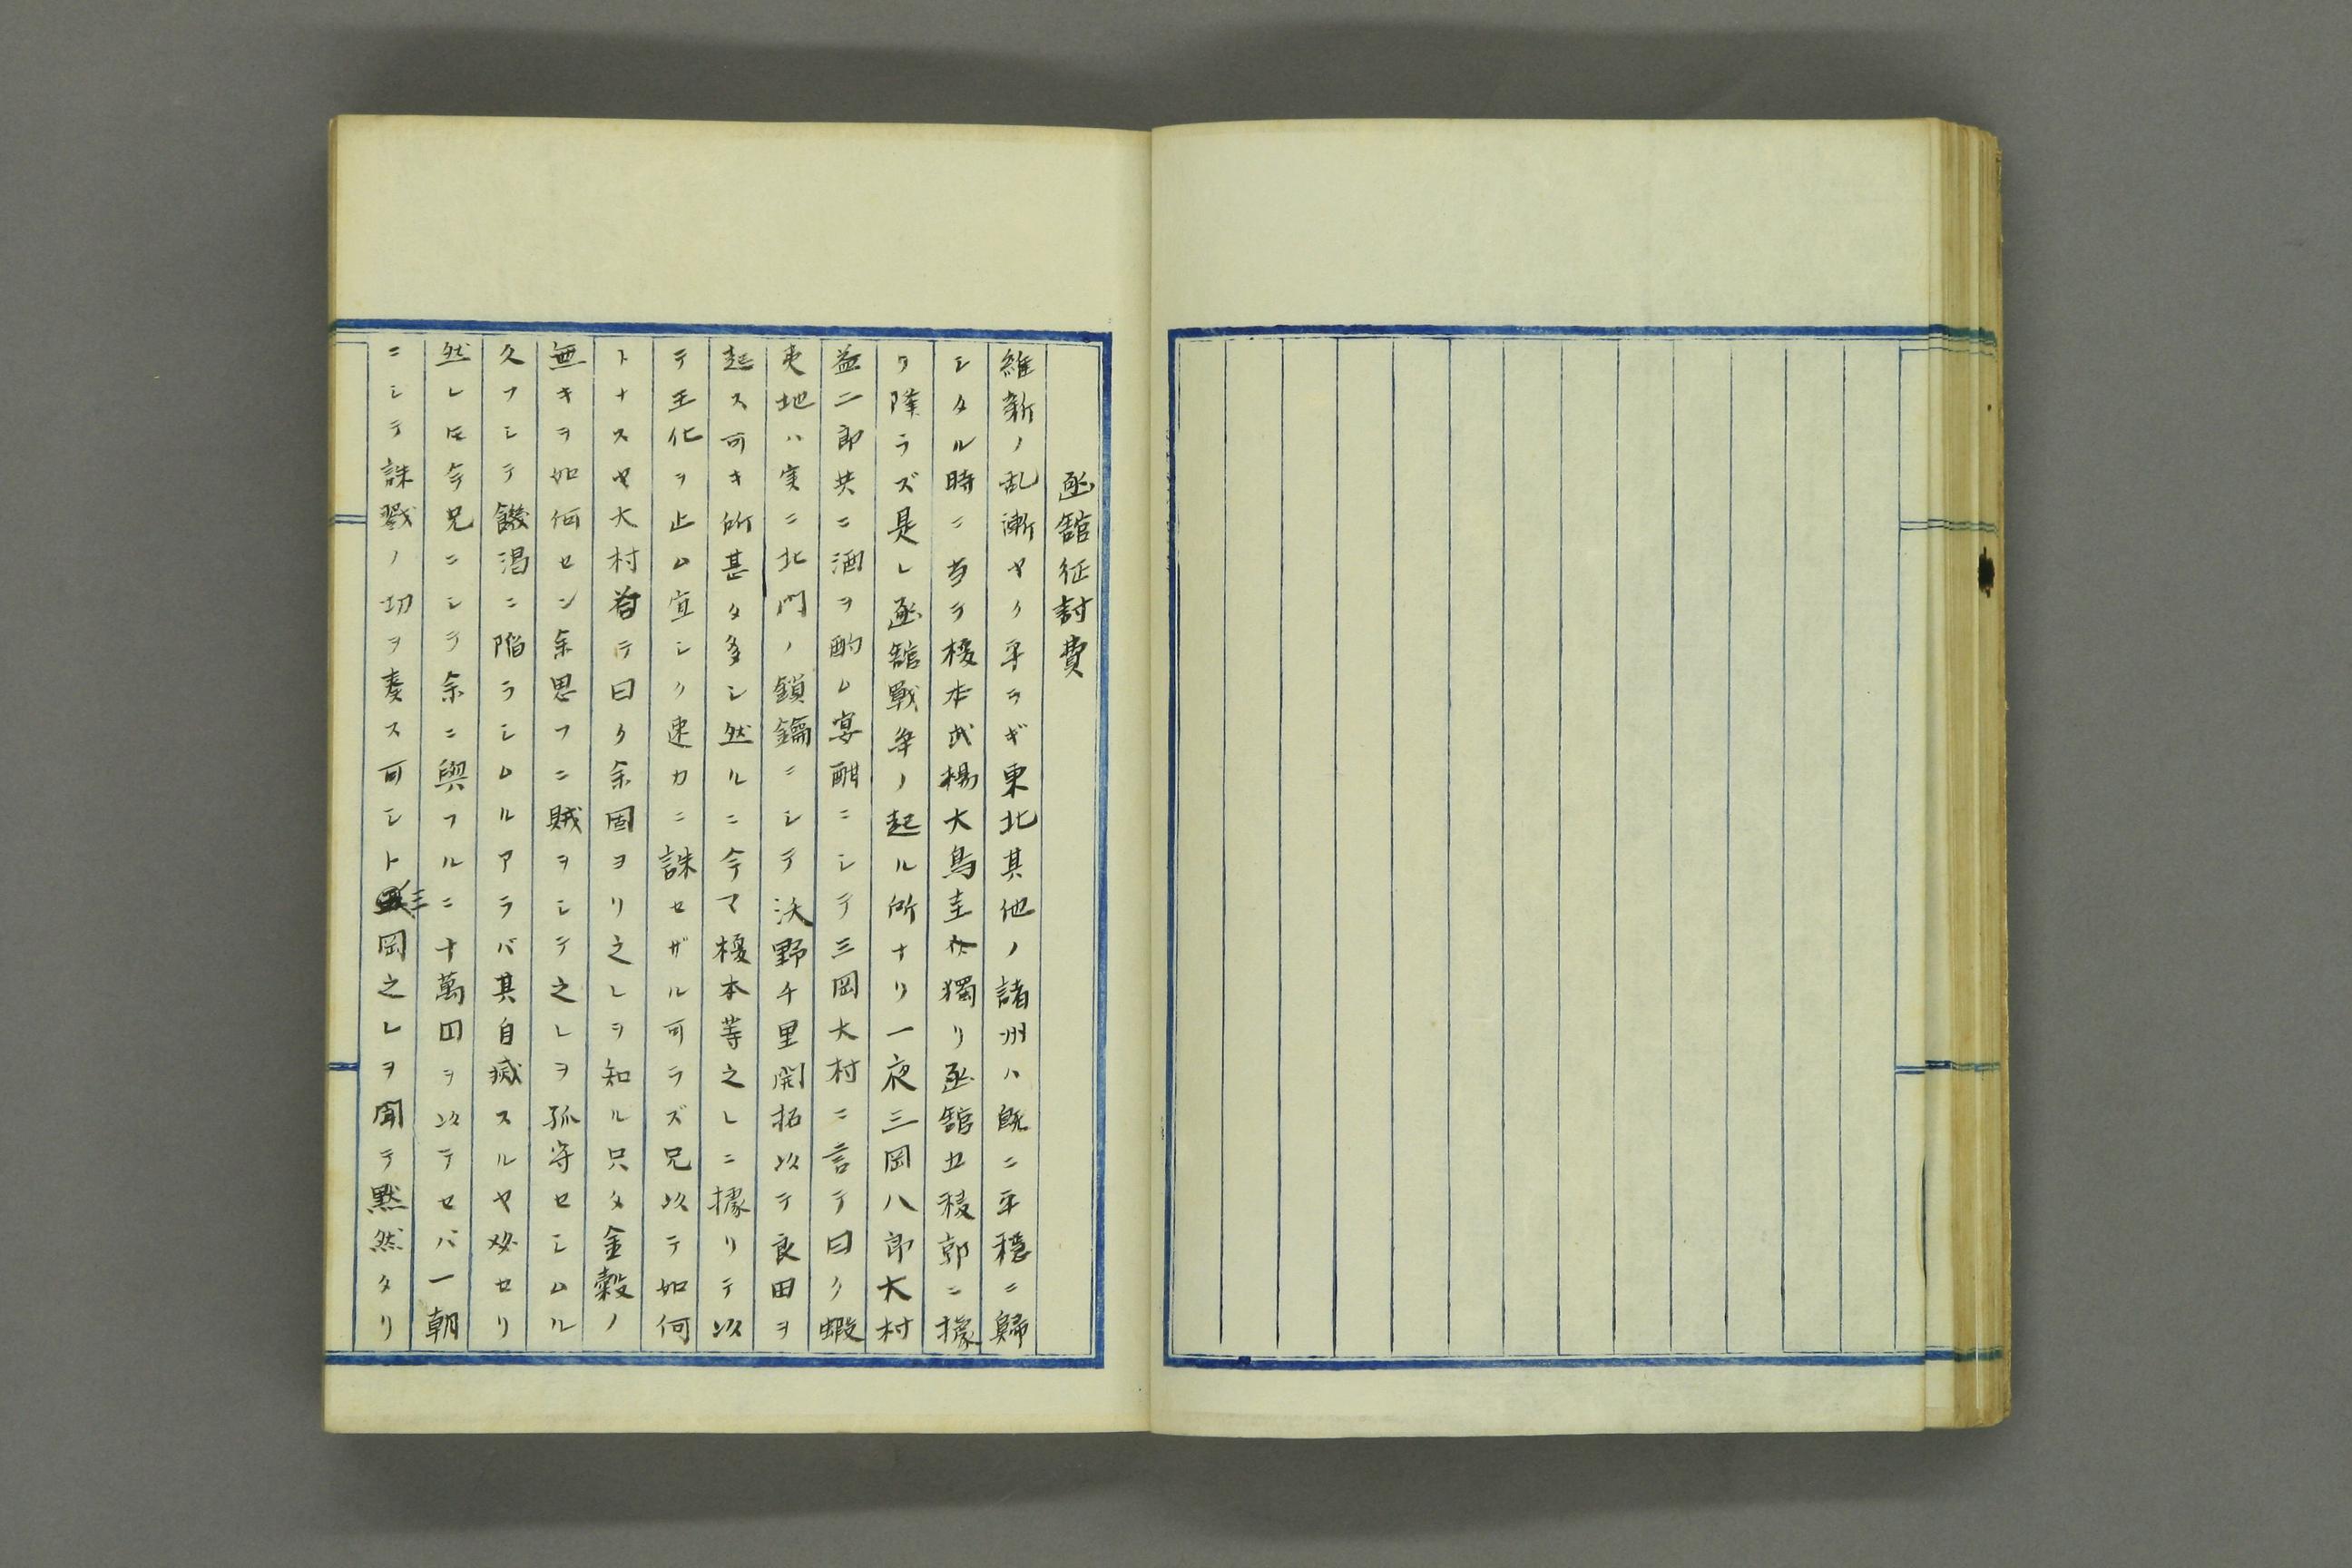 函館征討費
維新ノ乱漸ヤク平ラギ東北其他ノ諸州ハ既ニ平穏ニ帰
シタル時ニ当テ榎本武楊大鳥圭介獨リ函館五稜郭ニ據
リ降ラズ是レ函館戰争ノ起ル所ナリ一夜三岡八郎大村
益二郎共ニ酒ヲ酌ム宴酣ニシテ三岡大村ニ言テ曰ク蝦
夷地ハ実ニ北門ノ鎖鑰ニシテ沃野千里開拓以テ良田ヲ
起ス可キ所甚タ多シ然ルニ今マ榎本等之レニ據リテ以
テ王化ヲ止ム宜シク速カニ誅セザル可ラズ兄以テ如何
トナスヤ大村荅テ曰ク余固ヨリ之レヲ知ル只タ金穀ノ
無キヲ如何セン余思フニ賊ヲシテ之レヲ孤守セシムル
久フシテ饑渇ニ陥ラシムルアラバ其自滅スルヤ必セリ
然レ𪜈今兄ニシテ余ニ與フルニ二十萬円ヲ以テセバ一朝
ニシテ誅戮ノ功ヲ奏ス可シト三岡之レヲ聞テ黙然タリ